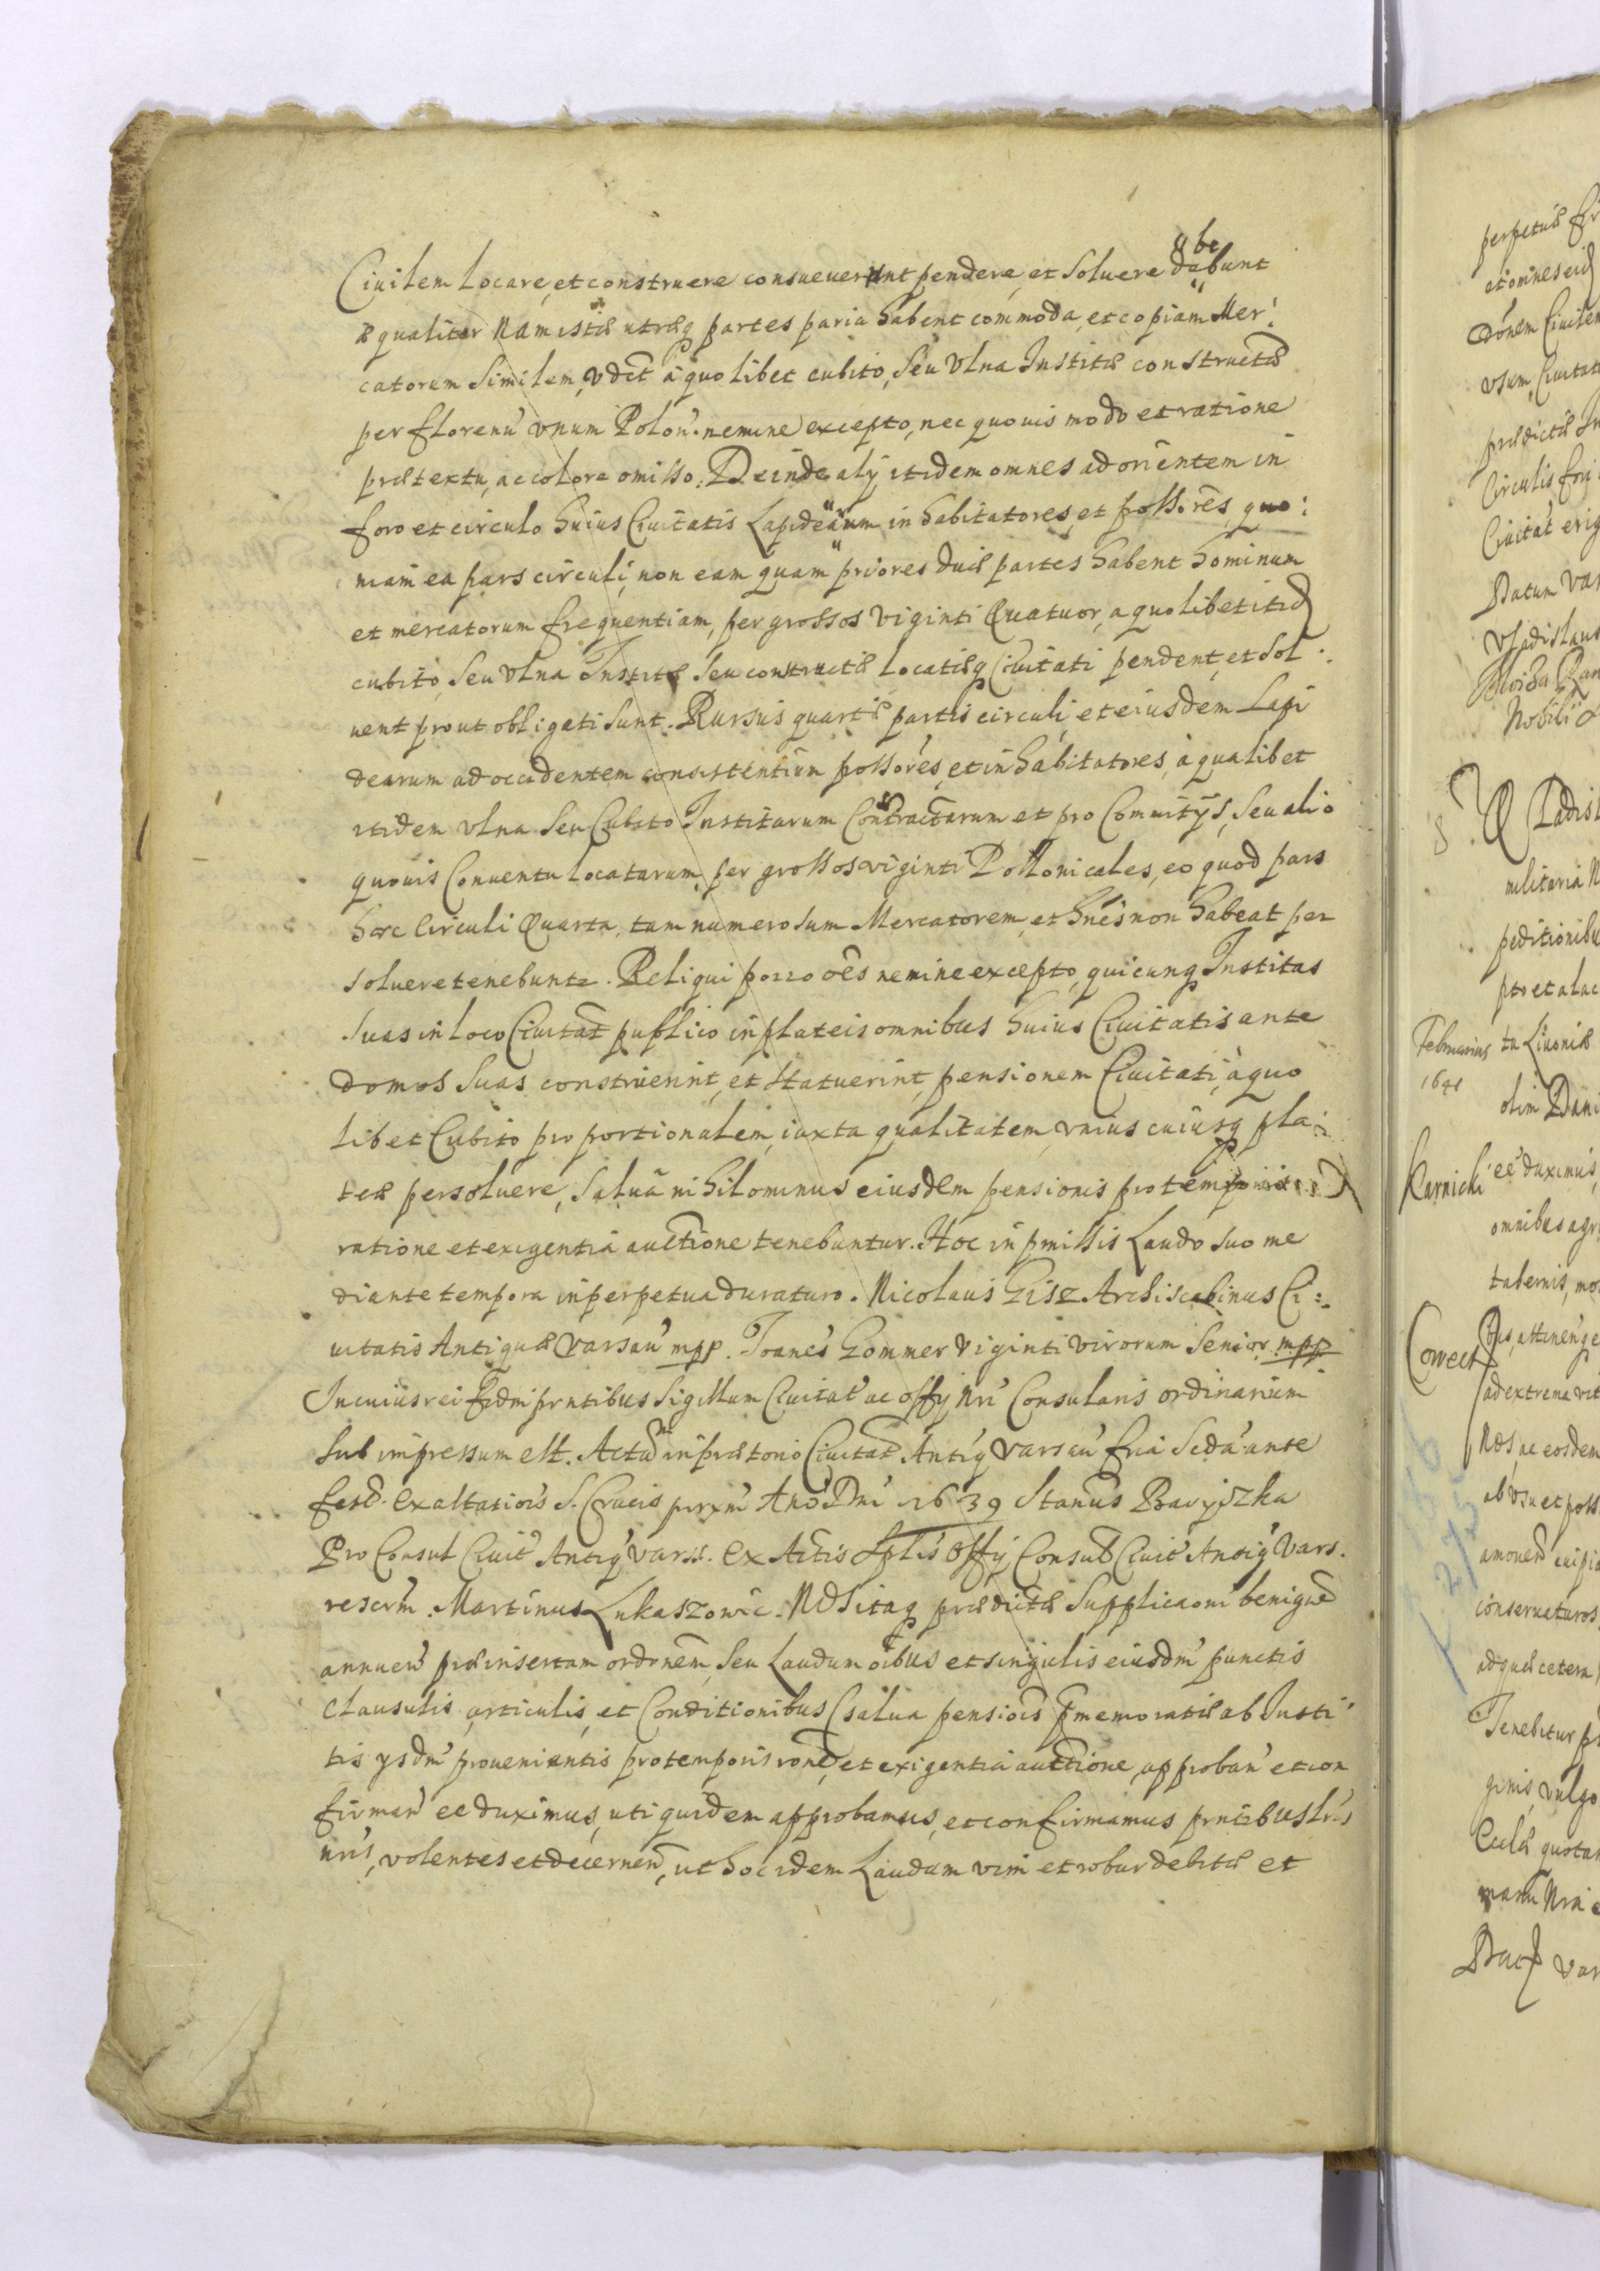 be
Ciuilem locare, et construere consueuerunt pendere, et soluere dabunt
æqualiter Nam istæ utræq partes paria habent commoda, et copiam Mer:
catorum similem, vdet à quolibet cubito, seu vlna Institæ constructæ
per florenu vnum Polon. nemine excepto, nec quouis modo et ratione
prætextu, ac colore omisso. Deinde alÿ itidem omnes ad orientem in
foro et circulo huius Ciuitatis Lapidearum inhabitatores, et possores, quo:
niam ea pars circuli, non eam quam priores duæ partes habent hominum
et mercatorum frequentiam, per grossos viginti Quatuor, a quolibet itid
cubito, seu vlna Institæ seu constructæ locatæq Ciuitati pendent, et sol:
uent prout obligati sunt. Rursus quartæ partis circuli, et eiusdem Lapi
dearum ad occidentem consistentium possores, et inhabitatores, à qualibet
itidem vlna seu Cubito Institarum Contractarum et pro Comitÿs, seu alio
quouis Conuentu locatarum, per grossos viginti Pollonicales, eo quod pars
hæc Circuli Quarta, tam numerosum Mercatorem, et hnes non habeat per
soluere tenebuntr. Reliqui porro oes nemine excepto, quicunq Institas
suas in loco Ciuitat publico in plateis omnibus huius Ciuitatis ante
domos suas construerint, et statuerint, pensionem Ciuitati, à quo
libet Cubito proportionalem, iuxta qualitatem, vnius cuiusq pla:
teæ persoluere, salua nihilominus eiusdem pensionis pro temporis
ratione et exigentia auctione tenebuntur. Hoc in pmissis Laudo suo me
diante tempora in perpetua duraturo. Nicolaus Gisz Archiscabinus Ci:
uitatis Antiquæ Varsau mpp. Joanes Gommer Viginti virorum Senior mpp
In cuius rei fidm prntibus Sigillum Ciuitat ac offÿ nri Consularis ordinarium
sub impressum est. Actu in prætorio Ciuitat Antiq Varsau fria Scda ante
fest. Exaltatiois S. Crucis proxm Ano Dni 1639 Stanus Baryszka
Pro Consul Ciuit Antiq Vars. Ex Actis Splis Offÿ Consul Ciuit Antiq Vars.
rescrm. Martinus Lukaszowic. Nos itaq prædictæ Supplicaoni benigne
annuen præinsertam ordonem, seu Laudum oibus et singulis eiusdm punctis
clausulis, articulis, et Conditionibus (salua pensiois pmemoratæ ab Insti
tis ysdm prouenientis pro temporis rone, et exigentia auctione, approban et con
firman ee duximus, uti quidem approbamus, et confirmamus prntibus lris
nris, volentes et decernen, ut hoc idem Laudum vim et robur debitæ et
perpetuæ fir
et omnes eid
donem Ciuilem
vsum, Ciuitat
prædictæ In
Circulis fori
Ciuitat erig
Datum Var
Vladislaus
Nobili
8
Vladisl
militaria N
peditionibu
pto et alac
Februarius ta Liuoniæ
1641
olim Dani
Karnicki ee duximus,
omnibus agr
tabernis, mo
Correct
bus, attinen, ge
ad extrema vit
Nos, ac eosdem
ab vsu et poss
amouen cuipia
conseruaturos
ad quæ cetera
Tenebitur p
ginis, vulgo
manu Nra
Dat Var